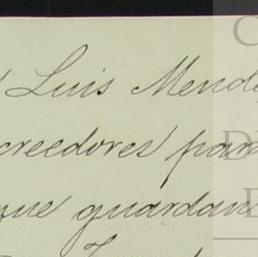 Luis Mend
creedores para
que guardan